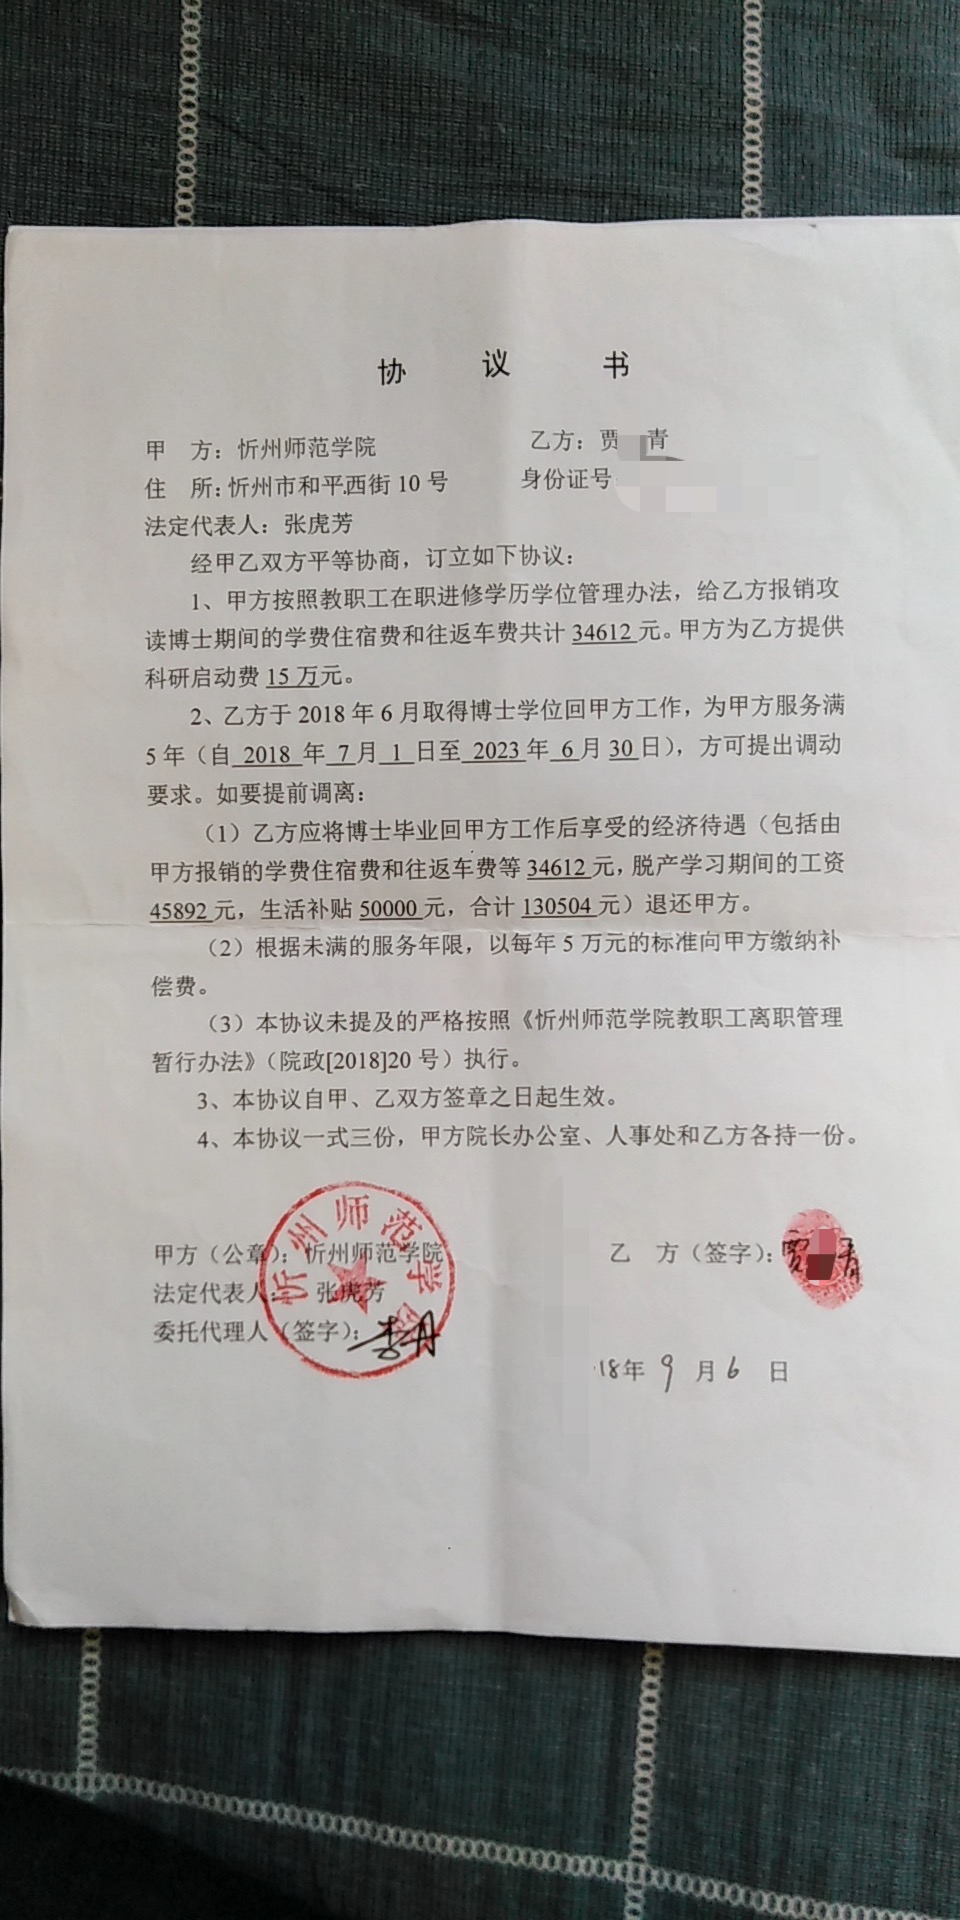 协 议 书
甲 方：忻州师范学院 乙方：贾 青
住 所：忻州市和平西街 10 号 身份证号
法定代表人：张虎芳
经甲乙双方平等协商，订立如下协议：
1、甲方按照教职工在职进修学历学位管理办法，给乙方报销攻
读博士期间的学费住宿费和往返车费共计 34612 元。甲方为乙方提供
科研启动费 15 万元。
2、乙方于 2018 年 6 月取得博士学位回甲方工作，为甲方服务满
5 年（自 2018 年 7 月 1 日至 2023 年 6 月 30 日），方可提出调动
要求。如要提前调离：
（1）乙方应将博士毕业回甲方工作后享受的经济待遇（包括由
甲方报销的学费住宿费和往返车费等 34612 元，脱产学习期间的工资
45892 元，生活补贴 50000 元，合计 130504 元）退还甲方。
（2）根据未满的服务年限，以每年 5 万元的标准向甲方缴纳补
偿费。
（3）本协议未提及的严格按照《忻州师范学院教职工离职管理
暂行办法》（院政[2018]20 号）执行。
3、本协议自甲、乙双方签章之日起生效。
4、本协议一式三份，甲方院长办公室、人事处和乙方各持一份。
忻州师范学院
甲方（公章）：忻州师范学院 乙 方（签字）：贾 青
法定代表人： 张虎芳
委托代理人（签字）：李丹
18年 9 月 6 日